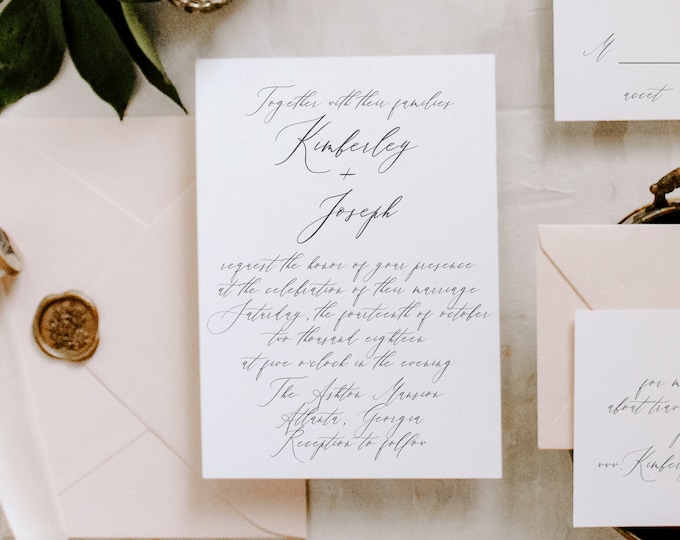 Together with their families
Kimberley
+
Joseph
request the honor of your presence
at the celebration of their marriage
Saturday, the fourteenth of october
two thousand eighteen
at five o'clock in the evening
The Ashton Mansion
Atlanta, Georgia
Reception to follow
M
accet
for m
about trav
www.Kimberle